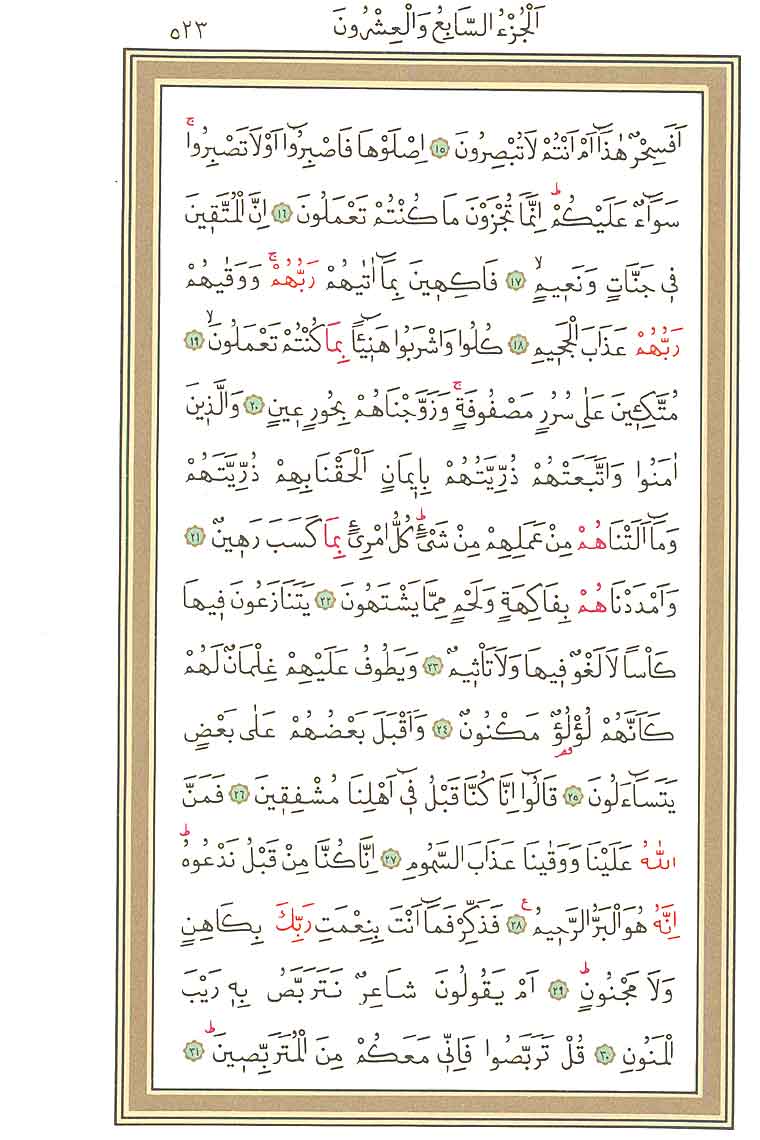 اَلْجُزْءُ السَّابِعُ وَالْعِشْرُونَ
٥٢٣
اَفَسِحْرٌ هٰذَٓا اَمْ اَنْتُمْ لَا تُبْصِرُونَ ﴿١٥﴾ اِصْلَوْهَا فَاصْبِرُٓوا اَوْ لَا تَصْبِرُواۚ
سَوَٓاءٌ عَلَيْكُمْۜ اِنَّمَا تُجْزَوْنَ مَا كُنْتُمْ تَعْمَلُونَ ﴿١٦﴾ اِنَّ الْمُتَّق۪ينَ
ف۪ي جَنَّاتٍ وَنَع۪يمٍۙ ﴿١٧﴾ فَاكِه۪ينَ بِمَٓا اٰتٰيهُمْ رَبُّهُمْۚ وَوَقٰيهُمْ
رَبُّهُمْ عَذَابَ الْجَح۪يمِ ﴿١٨﴾ كُلُوا وَاشْرَبُوا هَن۪ٓيـًٔا بِمَا كُنْتُمْ تَعْمَلُونَۙ ﴿١٩﴾
مُتَّكِـ۪ٔينَ عَلٰى سُرُرٍ مَصْفُوفَةٍۚ وَزَوَّجْنَاهُمْ بِحُورٍ ع۪ينٍ ﴿٢٠﴾ وَالَّذ۪ينَ
اٰمَنُوا وَاتَّبَعَتْهُمْ ذُرِّيَّتُهُمْ بِا۪يمَانٍ اَلْحَقْنَا بِهِمْ ذُرِّيَّتَهُمْ
وَمَٓا اَلَتْنَاهُمْ مِنْ عَمَلِهِمْ مِنْ شَيْءٍۜ كُلُّ امْرِئٍ بِمَا كَسَبَ رَه۪ينٌ ﴿٢١﴾
وَاَمْدَدْنَاهُمْ بِفَاكِهَةٍ وَلَحْمٍ مِمَّا يَشْتَهُونَ ﴿٢٢﴾ يَتَنَازَعُونَ ف۪يهَا
كَاْسًا لَا لَغْوٌ ف۪يهَا وَلَا تَاْث۪يمٌ ﴿٢٣﴾ وَيَطُوفُ عَلَيْهِمْ غِلْمَانٌ لَهُمْ
كَاَنَّهُمْ لُؤْلُؤٌ مَكْنُونٌ ﴿٢٤﴾ وَاَقْبَلَ بَعْضُهُمْ عَلٰى بَعْضٍ
يَتَسَٓاءَلُونَ ﴿٢٥﴾ قَالُٓوا اِنَّا كُنَّا قَبْلُ ف۪ٓي اَهْلِنَا مُشْفِق۪ينَ ﴿٢٦﴾ فَمَنَّ
اللّٰهُ عَلَيْنَا وَوَقٰينَا عَذَابَ السَّمُومِ ﴿٢٧﴾ اِنَّا كُنَّا مِنْ قَبْلُ نَدْعُوهُۜ
اِنَّهُ هُوَ الْبَرُّ الرَّح۪يمُ ﴿٢٨﴾ فَذَكِّرْ فَمَٓا اَنْتَ بِنِعْمَتِ رَبِّكَ بِكَاهِنٍ
وَلَا مَجْنُونٍۜ ﴿٢٩﴾ اَمْ يَقُولُونَ شَاعِرٌ نَتَرَبَّصُ بِه۪ رَيْبَ
الْمَنُونِ ﴿٣٠﴾ قُلْ تَرَبَّصُوا فَاِنّ۪ي مَعَكُمْ مِنَ الْمُتَرَبِّص۪ينَۜ ﴿٣١﴾